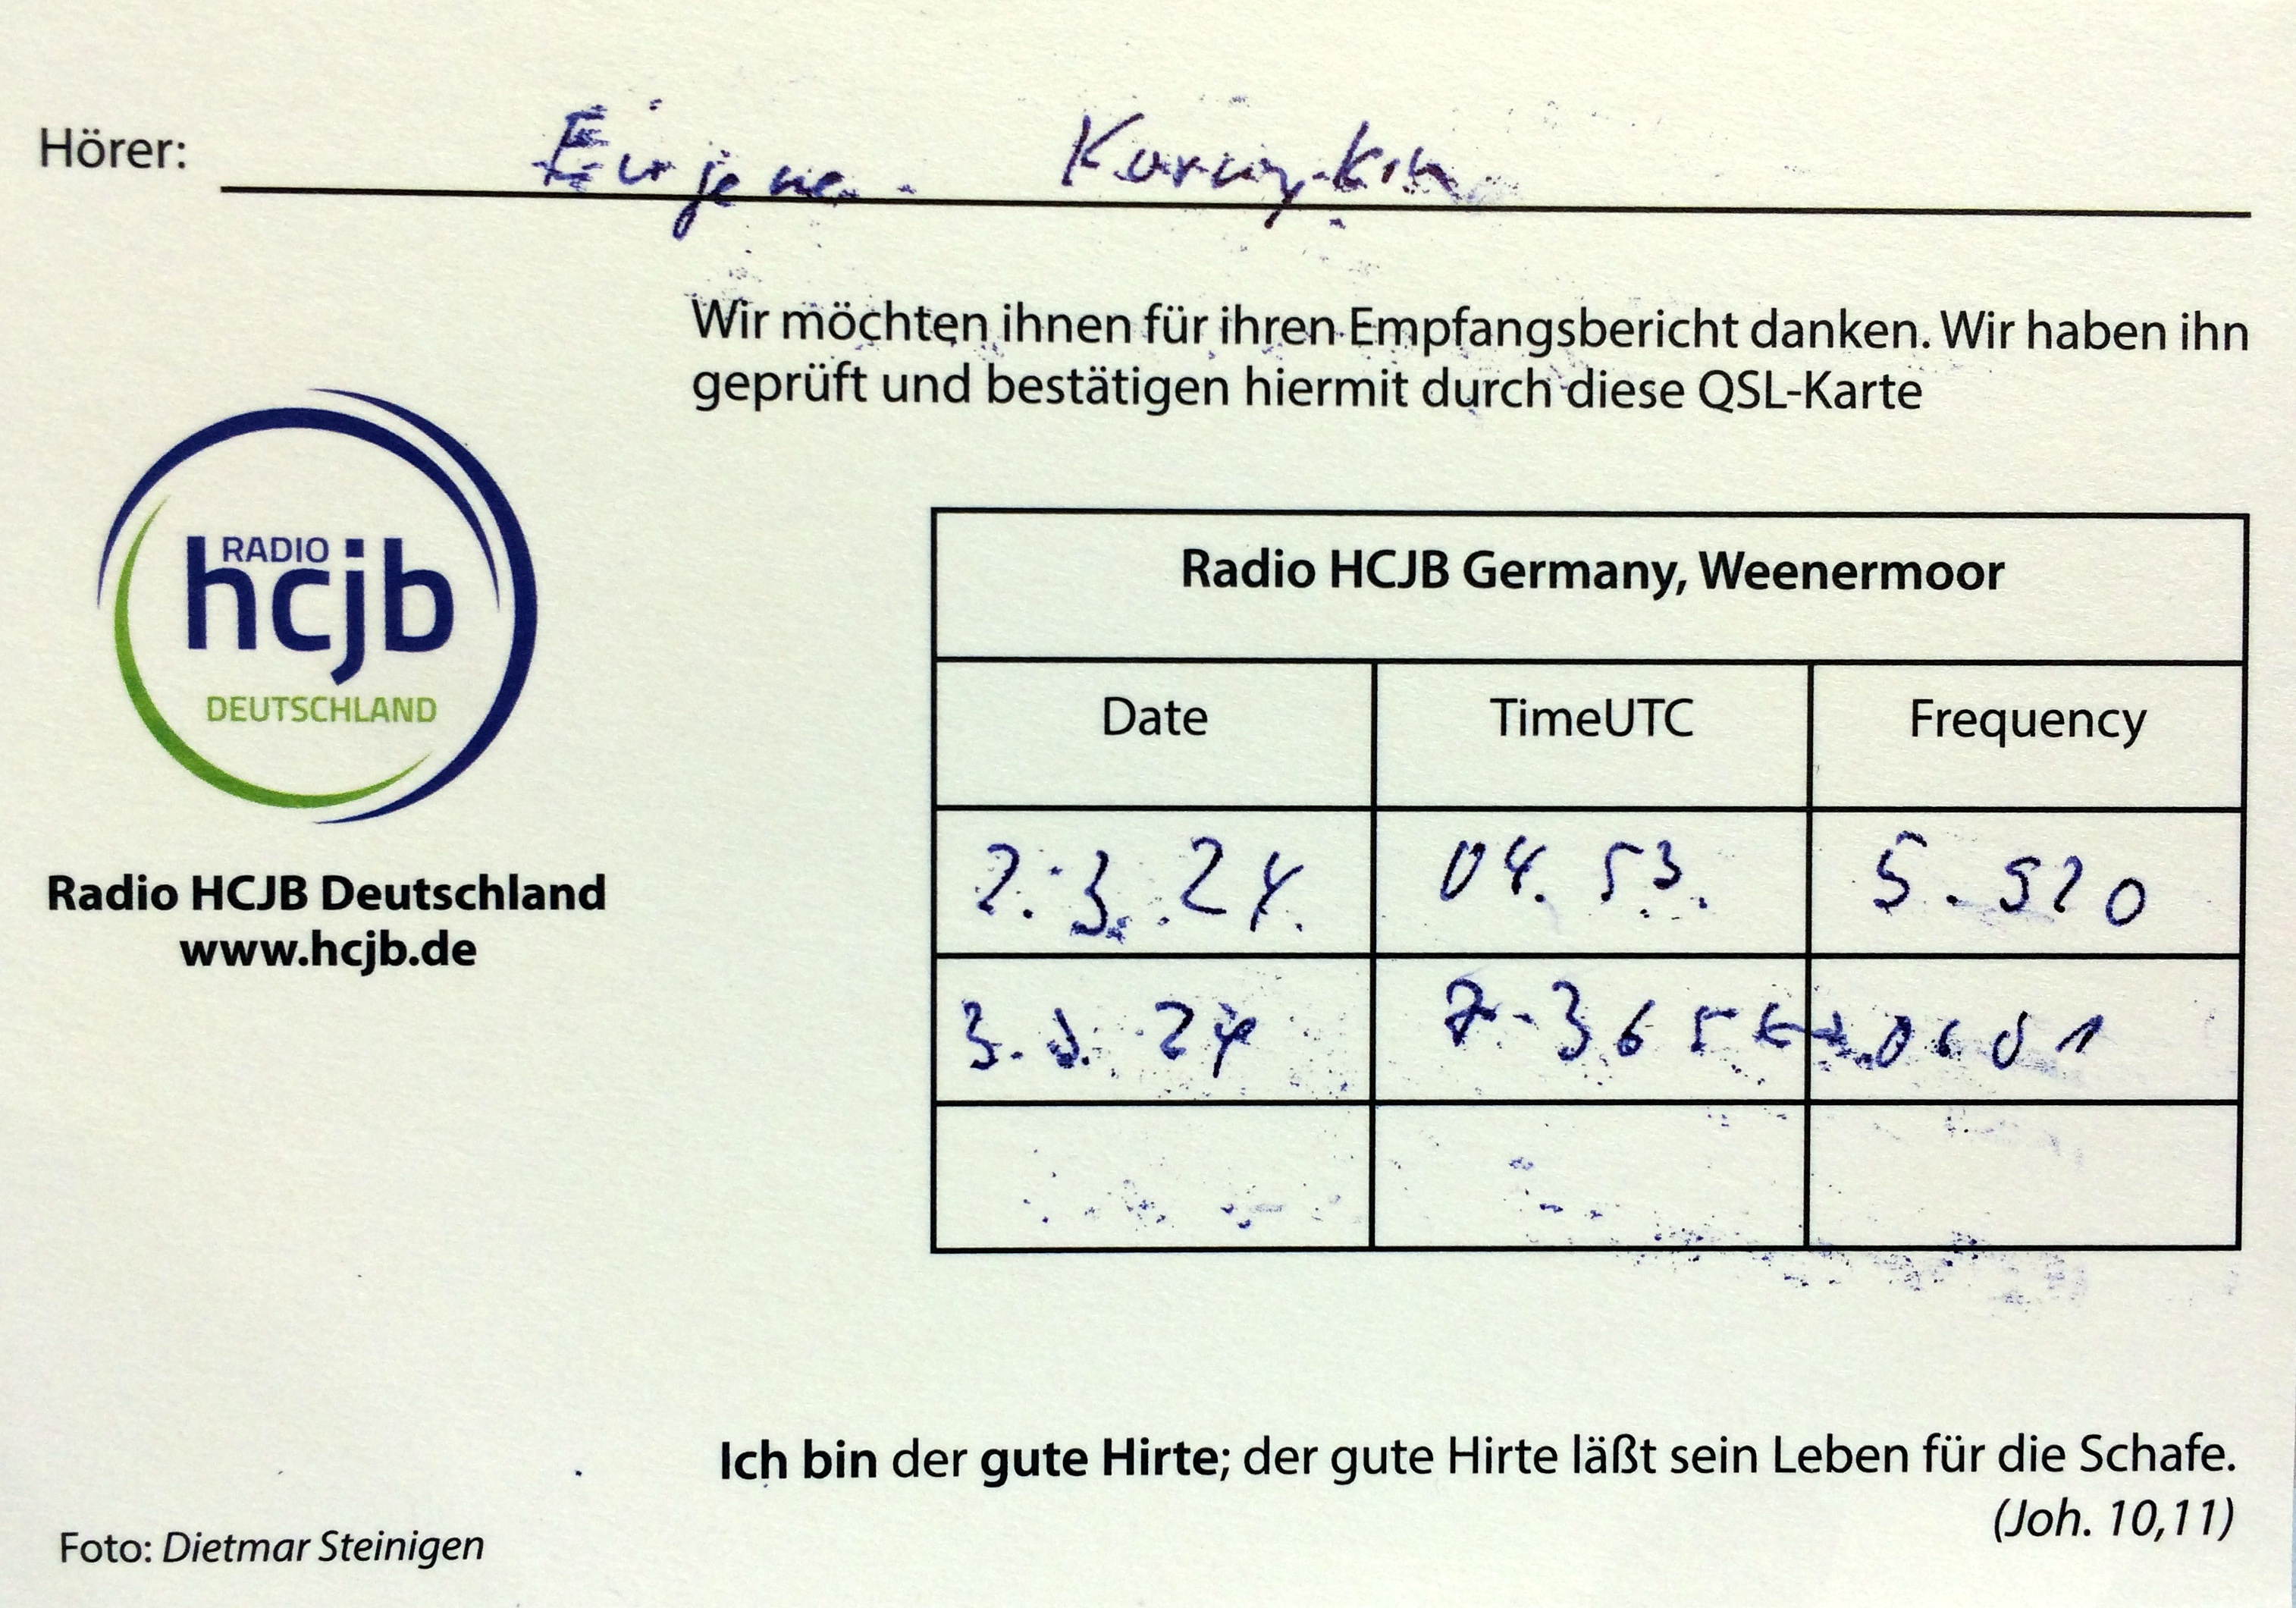 Hörer:
Wir möchten ihnen für ihren Empfangsbericht danken. Wir haben ihn
geprüft und bestätigen hiermit durch diese QSL-Karte
RADIO
hcjb
DEUTSCHLAND
Radio HCJB Deutschland
www.hcjb.de
Radio HCJB Germany, Weenermoor
Date TimeUTC Frequency
2.3.24. 04.53. 5.920
3. 24 7.365 ↔ 0601
Ich bin der gute Hirte; der gute Hirte läßt sein Leben für die Schafe.
(Joh. 10,11)
Foto: Dietmar Steinigen